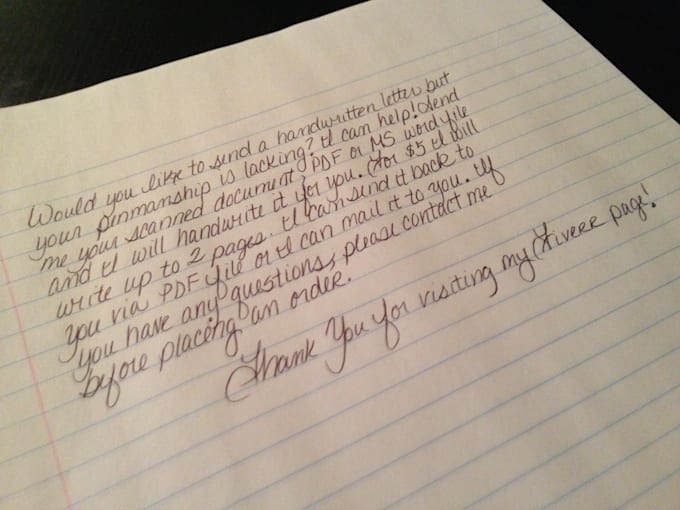 Would you like to send a handwritten letter but
your penmanship is lacking? I can help! Send
me your scanned document, PDF or MS word file
and I will handwrite it for you. For $5 I will
write up to 2 pages. I can send it back to
you via PDF file or I can mail it to you. If
you have any questions, please contact me
before placing an order.
Thank You for visiting my Fiverr page!